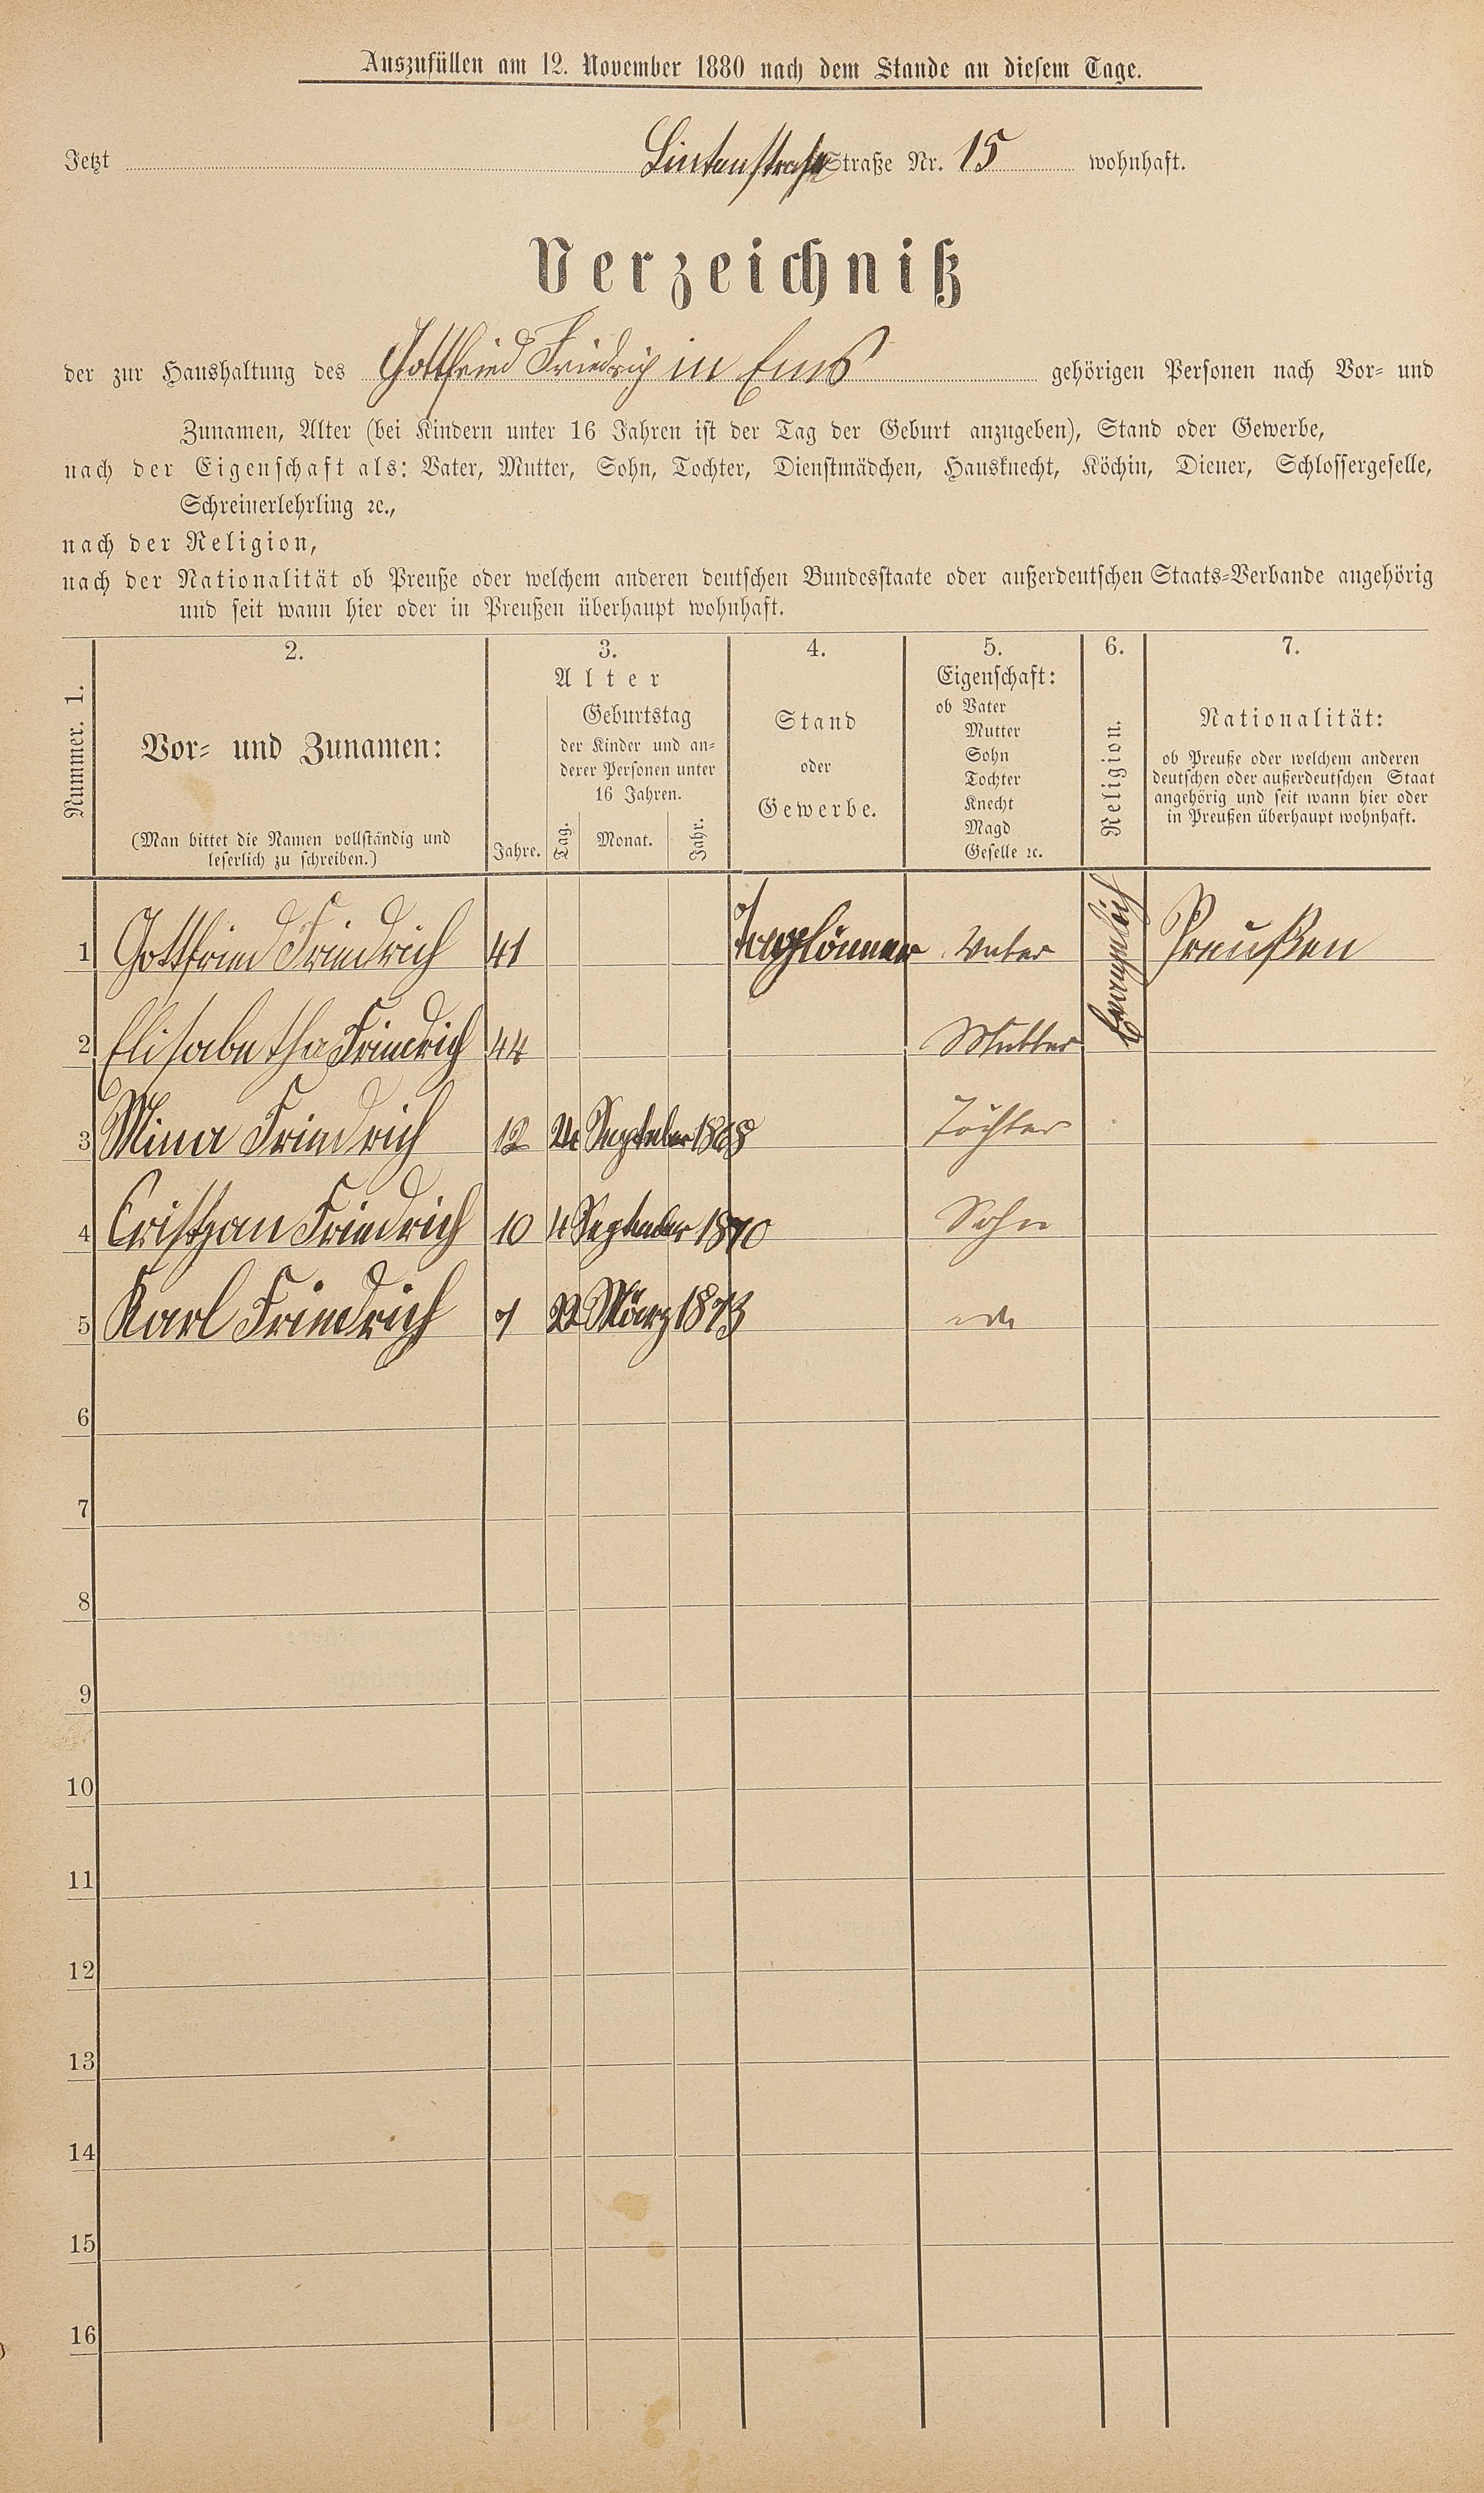 Auszufüllen am 12. November 1880 nach dem Stande an diesem Tage.
Jetzt Lintenstraße Straße Nr. 15 wohnhaft.
Verzeichniß
der zur Haushaltung des Gottfried Friedrich in Ems gehörigen Personen nach Vor- und
Zunamen, Alter (bei Kindern unter 16 Jahren ist der Tag der Geburt anzugeben), Stand oder Gewerbe,
nach der Eigenschaft als: Vater, Mutter, Sohn, Tochter, Dienstmädchen, Hausknecht, Köchin, Diener, Schlossergeselle,
Schreinerlehrling ꝛc.,
nach der Religion,
nach der Nationalität ob Preuße oder welchem anderen deutschen Bundesstaate oder außerdeutschen Staats-Verbande angehörig
und seit wann hier oder in Preußen überhaupt wohnhaft.
Nummer. 1.
2.
Vor- und Zunamen:
(Man bittet die Namen vollständig und
leserlich zu schreiben.)
3.
Alter
Jahre.
Geburtstag
der Kinder und an-
derer Personen unter
16 Jahren.
Tag. Monat. Jahr.
4.
Stand
oder
Gewerbe.
5.
Eigenschaft:
ob Vater
Mutter
Sohn
Tochter
Knecht
Magd
Geselle ꝛc.
6.
Religion.
7.
Nationalität:
ob Preuße oder welchem anderen
deutschen oder außerdeutschen Staat
angehörig und seit wann hier oder
in Preußen überhaupt wohnhaft.
1 Gottfried Friedrich 41 Taglönner Vater Preußen
2 Elisabetha Friedrich 44 Mutter
3 Mina Friedrich 12 September 1868 Tochter
4 Cristjan Friedrich 10 4 September 1870 Sohn
5 Karl Friedrich 7 22 März 1873
6
7
8
9
10
11
12
13
14
15
16